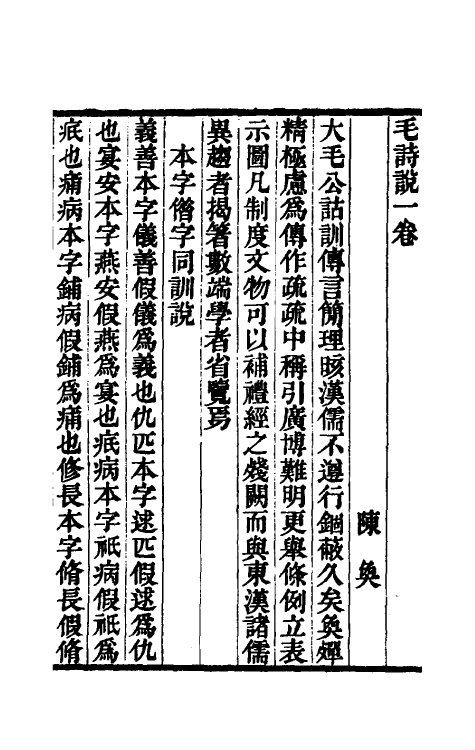 毛詩說一卷
陳奐
大毛公詁訓傳言簡理賅漢儒不遵行錮蔽久矣奐殫
精極慮爲傳作疏疏中稱引廣博難明更舉條例立表
示圖凡制度文物可以補禮經之殘闕而與東漢諸儒
異趣者揭箸數端學者省覽焉
本字借字同訓說
義善本字儀善假儀爲義也仇匹本字逑匹假逑爲仇
也宴安本字燕安假燕爲宴也疧病本字祇病假祇爲
疧也痡病本字鋪病假鋪爲痡也修長本字脩長假脩